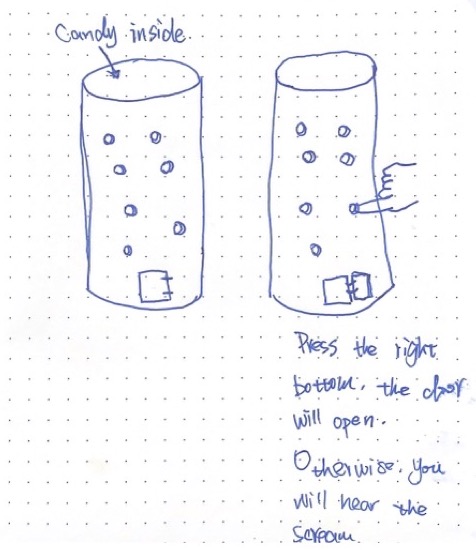 Candy inside
Press the right
bottom, the door
will open.
Otherwise, you
will hear the
scream